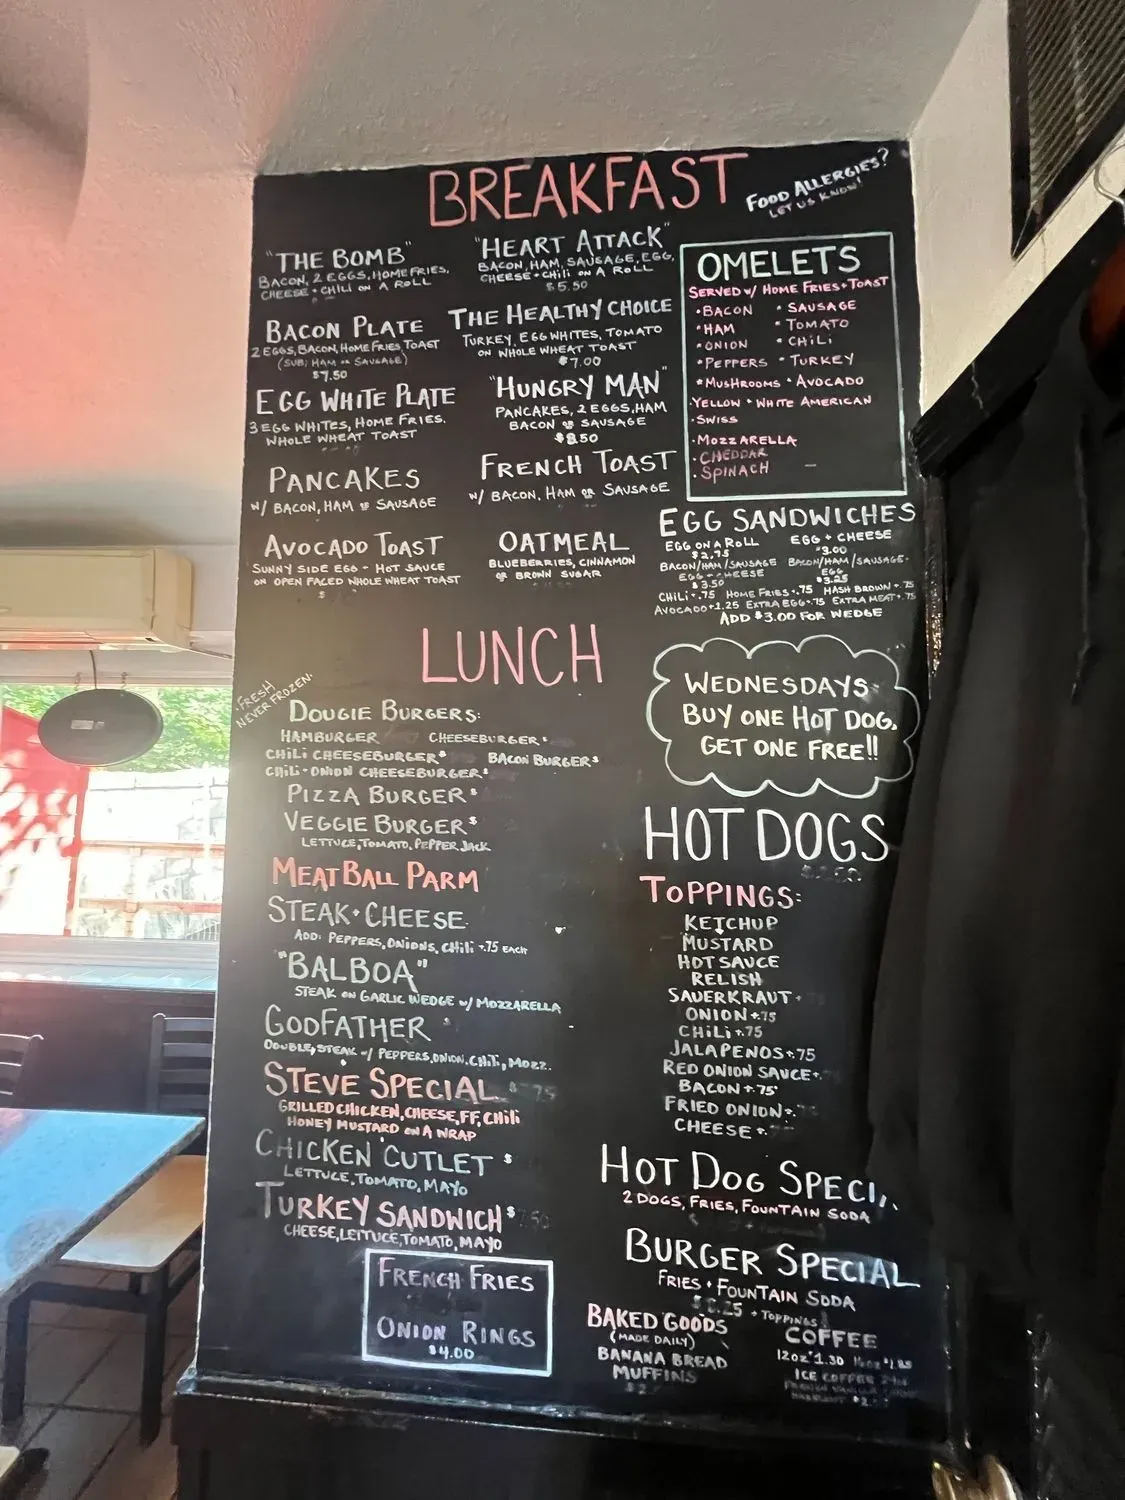 BREAKFAST
FOOD ALLERGIES?
LET US KNOW!
"THE BOMB"
BACON, 2 EGGS, HOMEFRIES,
CHEESE + CHILI ON A ROLL
BACON PLATE
2 EGGS, BACON, HOME FRIES, TOAST
(SUB: HAM OR SAUSAGE)
$7.50
EGG WHITE PLATE
3 EGG WHITES, HOME FRIES.
WHOLE WHEAT TOAST
PANCAKES
W/ BACON, HAM OR SAUSAGE
AVOCADO TOAST
SUNNY SIDE EGG - HOT SAUCE
ON OPEN FACED WHOLE WHEAT TOAST
$
"HEART ATTACK"
BACON, HAM, SAUSAGE, EGG,
CHEESE + CHILI ON A ROLL
$5.50
THE HEALTHY CHOICE
TURKEY, EGG WHITES, TOMATO
ON WHOLE WHEAT TOAST
$7.00
"HUNGRY MAN"
PANCAKES, 2 EGGS, HAM
BACON OR SAUSAGE
$8.50
FRENCH TOAST
W/ BACON, HAM OR SAUSAGE
OATMEAL
BLUEBERRIES, CINNAMON
OR BROWN SUGAR
OMELETS
SERVED W/ HOME FRIES + TOAST
• BACON • SAUSAGE
• HAM • TOMATO
• ONION • CHILI
• PEPPERS • TURKEY
• MUSHROOMS • AVOCADO
• YELLOW + WHITE AMERICAN
• SWISS
• MOZZARELLA
• CHEDDAR
• SPINACH
EGG SANDWICHES
EGG ON A ROLL
$2.75
EGG + CHEESE
$3.00
BACON/HAM/SAUSAGE
EGG + CHEESE
$3.50
BACON/HAM/SAUSAGE
EGG
$3.25
CHILI +.75 HOME FRIES +.75 HASH BROWN +.75
AVOCADO +1.25 EXTRA EGG +.75 EXTRA MEAT +.75
ADD $3.00 FOR WEDGE
LUNCH
FRESH
NEVER FROZEN
DOUGIE BURGERS:
HAMBURGER CHEESEBURGER
CHILI CHEESEBURGER BACON BURGER
CHILI-ONION CHEESEBURGER
PIZZA BURGER
VEGGIE BURGER
LETTUCE, TOMATO, PEPPER JACK
MEATBALL PARM
STEAK + CHEESE
ADD: PEPPERS, ONIONS, CHILI +.75 EACH
"BALBOA"
STEAK ON GARLIC WEDGE W/ MOZZARELLA
GODFATHER
DOUBLE STEAK W/ PEPPERS, ONION, CHILI, MOZZ.
STEVE SPECIAL
GRILLED CHICKEN, CHEESE, FF, CHILI
HONEY MUSTARD ON A WRAP
CHICKEN CUTLET $
LETTUCE, TOMATO, MAYO
TURKEY SANDWICH $
CHEESE, LETTUCE, TOMATO, MAYO
FRENCH FRIES
ONION RINGS
$4.00
WEDNESDAYS
BUY ONE HOT DOG,
GET ONE FREE!!
HOT DOGS
TOPPINGS:
KETCHUP
MUSTARD
HOT SAUCE
RELISH
SAUERKRAUT
ONION +.75
CHILI +.75
JALAPENOS +.75
RED ONION SAUCE +.
BACON +.75
FRIED ONION +.
CHEESE +.
HOT DOG SPECI
2 DOGS, FRIES, FOUNTAIN SODA
BURGER SPECIAL
FRIES + FOUNTAIN SODA
+ TOPPINGS
BAKED GOODS
(MADE DAILY)
BANANA BREAD
MUFFINS
COFFEE
12oz $1.30 16oz $1.85
ICE COFFEE 24oz